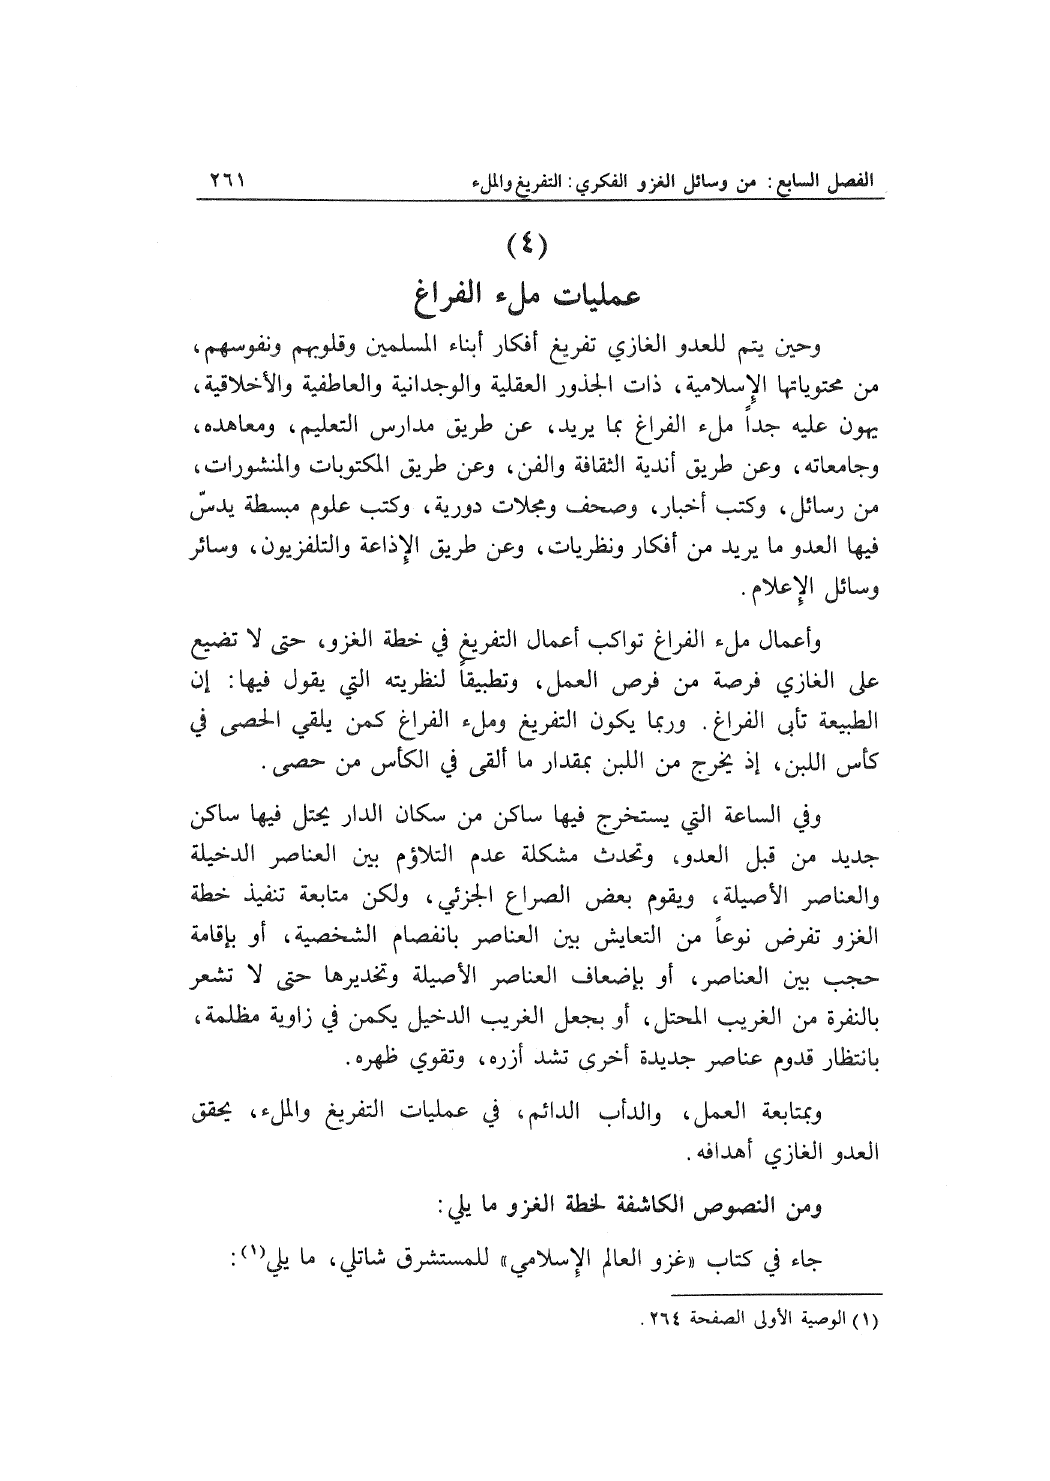 الفصل السابع: من وسائل الغزو الفكري: التفريغ والملء ٢٦١
(٤)
عمليات ملء الفراغ
وحين يتم للعدو الغازي تفريغ أفكار أبناء المسلمين وقلوبهم ونفوسهم،
من محتوياتها الإسلامية، ذات الجذور العقلية والوجدانية والعاطفية والأخلاقية،
يهون عليه جداً ملء الفراغ بما يريد، عن طريق مدارس التعليم، ومعاهده،
وجامعاته، وعن طريق أندية الثقافة والفن، وعن طريق المكتوبات والمنشورات،
من رسائل، وكتب أخبار، وصحف ومجلات دورية، وكتب علوم مبسطة يدسّ
فيها العدو ما يريد من أفكار ونظريات، وعن طريق الإذاعة والتلفزيون، وسائر
وسائل الإعلام.
وأعمال ملء الفراغ تواكب أعمال التفريغ في خطة الغزو، حتى لا تضيع
على الغازي فرصة من فرص العمل، وتطبيقاً لنظريته التي يقول فيها: إن
الطبيعة تأبى الفراغ. وربما يكون التفريغ وملء الفراغ كمن يلقي الحصى في
كأس اللبن، إذ يخرج من اللبن بمقدار ما ألقى في الكأس من حصى.
وفي الساعة التي يستخرج فيها ساكن من سكان الدار يحتل فيها ساكن
جديد من قبل العدو، وتحدث مشكلة عدم التلاؤم بين العناصر الدخيلة
والعناصر الأصيلة، ويقوم بعض الصراع الجزئي، ولكن متابعة تنفيذ خطة
الغزو تفرض نوعاً من التعايش بين العناصر بانفصام الشخصية، أو بإقامة
حجب بين العناصر، أو بإضعاف العناصر الأصيلة وتخديرها حتى لا تشعر
بالنفرة من الغريب المحتل، أو بجعل الغريب الدخيل يكمن في زاوية مظلمة،
بانتظار قدوم عناصر جديدة أخرى تشد أزره، وتقوي ظهره.
وبمتابعة العمل، والدأب الدائم، في عمليات التفريغ والملء، يحقق
العدو الغازي أهدافه.
ومن النصوص الكاشفة لخطة الغزو ما يلي:
جاء في كتاب «غزو العالم الإسلامي» للمستشرق شاتلي، ما يلي(١):
(١) الوصية الأولى الصفحة ٢٦٤.